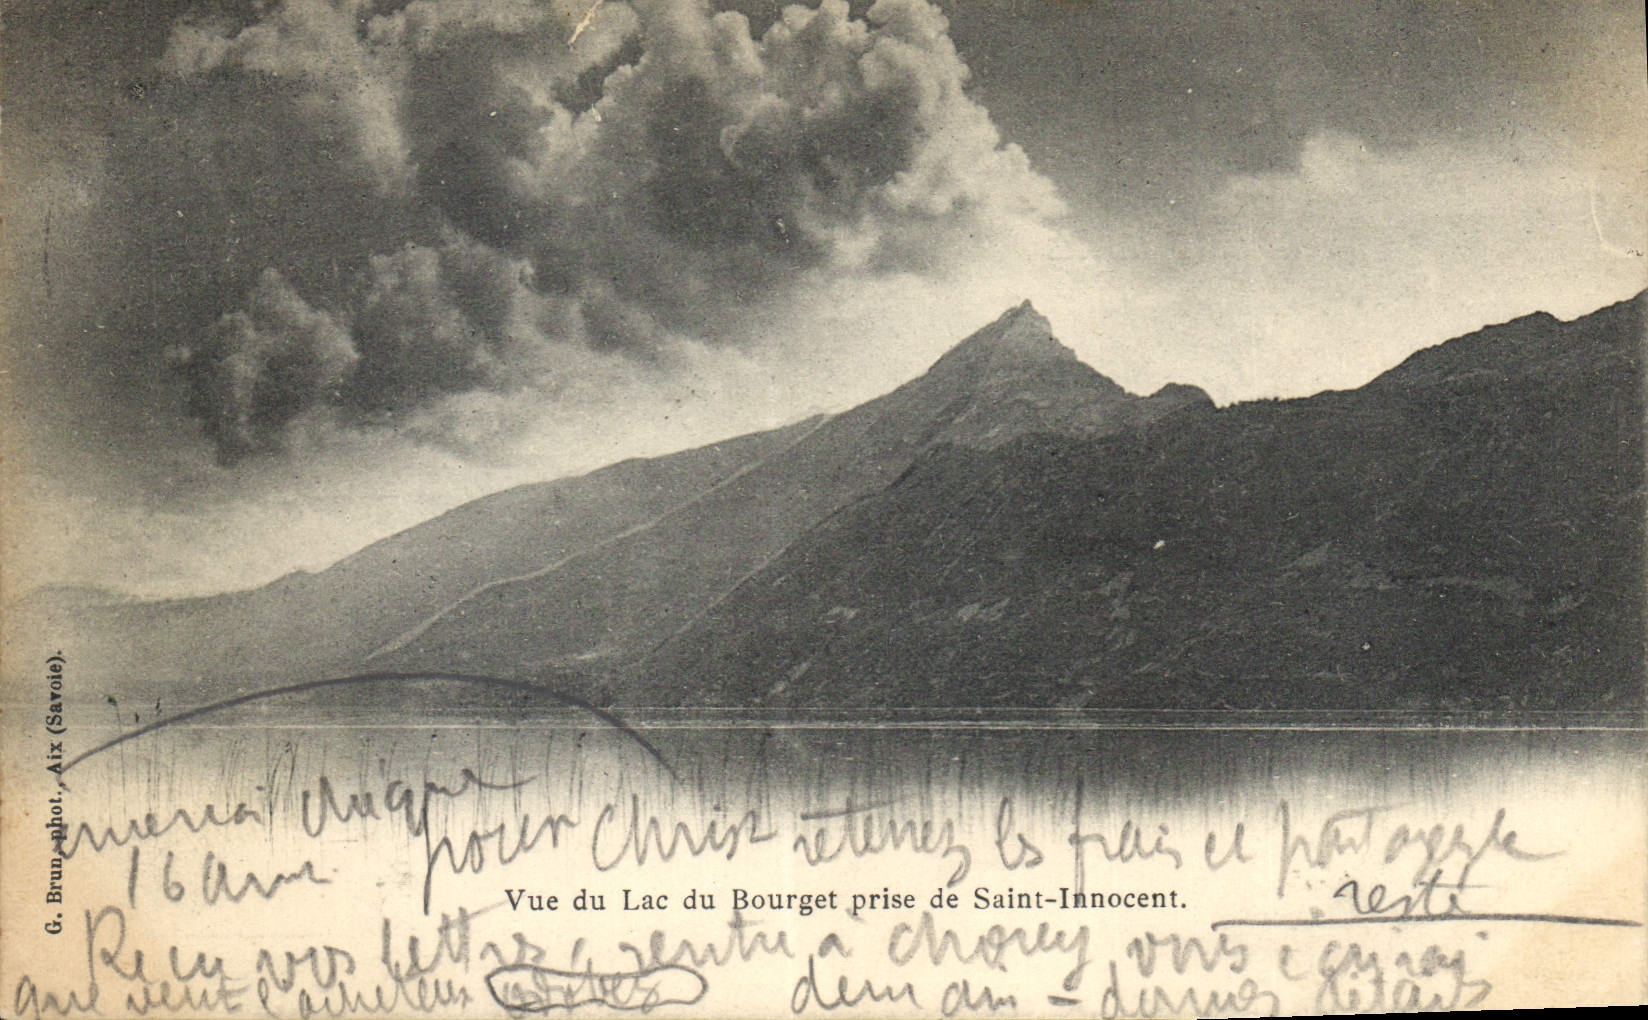 G. Brun, phot., Aix (Savoie).
chèque
pour Christ retenez les frais et partagez le
reste
16 
Vue du Lac du Bourget prise de Saint-Innocent.
Reçu vos lettres rentre à vous écrirai
que veut l'acheteur demain - donnez détails